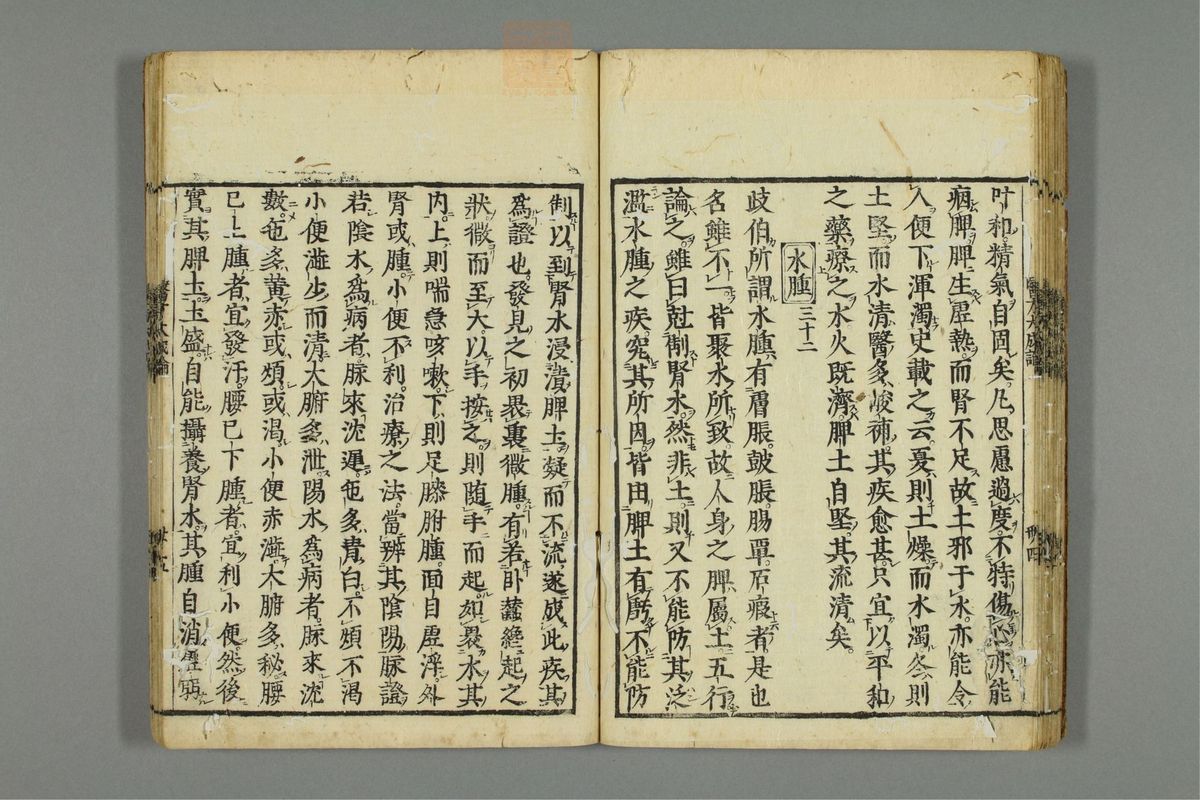 叶和精氣自固矣凡思慮過度不特傷心亦能
病脾脾生虛熱而腎不足故土邪于水亦能令
入便下渾濁史載之云夏則土燥而水濁冬則
土堅而水清醫多峻補其疾愈甚只宜以平和
之藥療之水火既濟脾土自堅其流清矣
水腫 三十二
歧伯所謂水腫有膚脹皷脹腸覃石瘕者是也
名雖不一皆聚水所致故人身之脾屬土五行
論之雖曰尅制腎水然非土則又不能防其泛
濫水腫之疾究其所因皆由脾土有虧不能防
制以到腎水浸漬脾土凝而不流遂成此疾其
為證也發見之初眼裏微腫有若臥蠶纔起之
狀微而至大以手按之則随手而起如裹水其
内上則喘急咳嗽下則足膝胕腫面目虛浮外
腎或腫小便不利治療之法當辨其陰陽脉證
若陰水為病者脉來沈遲色多青白不煩不渴
小便澁少而清大腑多泄陽水為病者脉來沈
數色多黄赤或煩或渴小便赤澁大腑多秘腰
已上腫者宜發汗腰已下腫者宜利小便然後
實其脾土土盛自能攝養腎水其腫自消虛弱